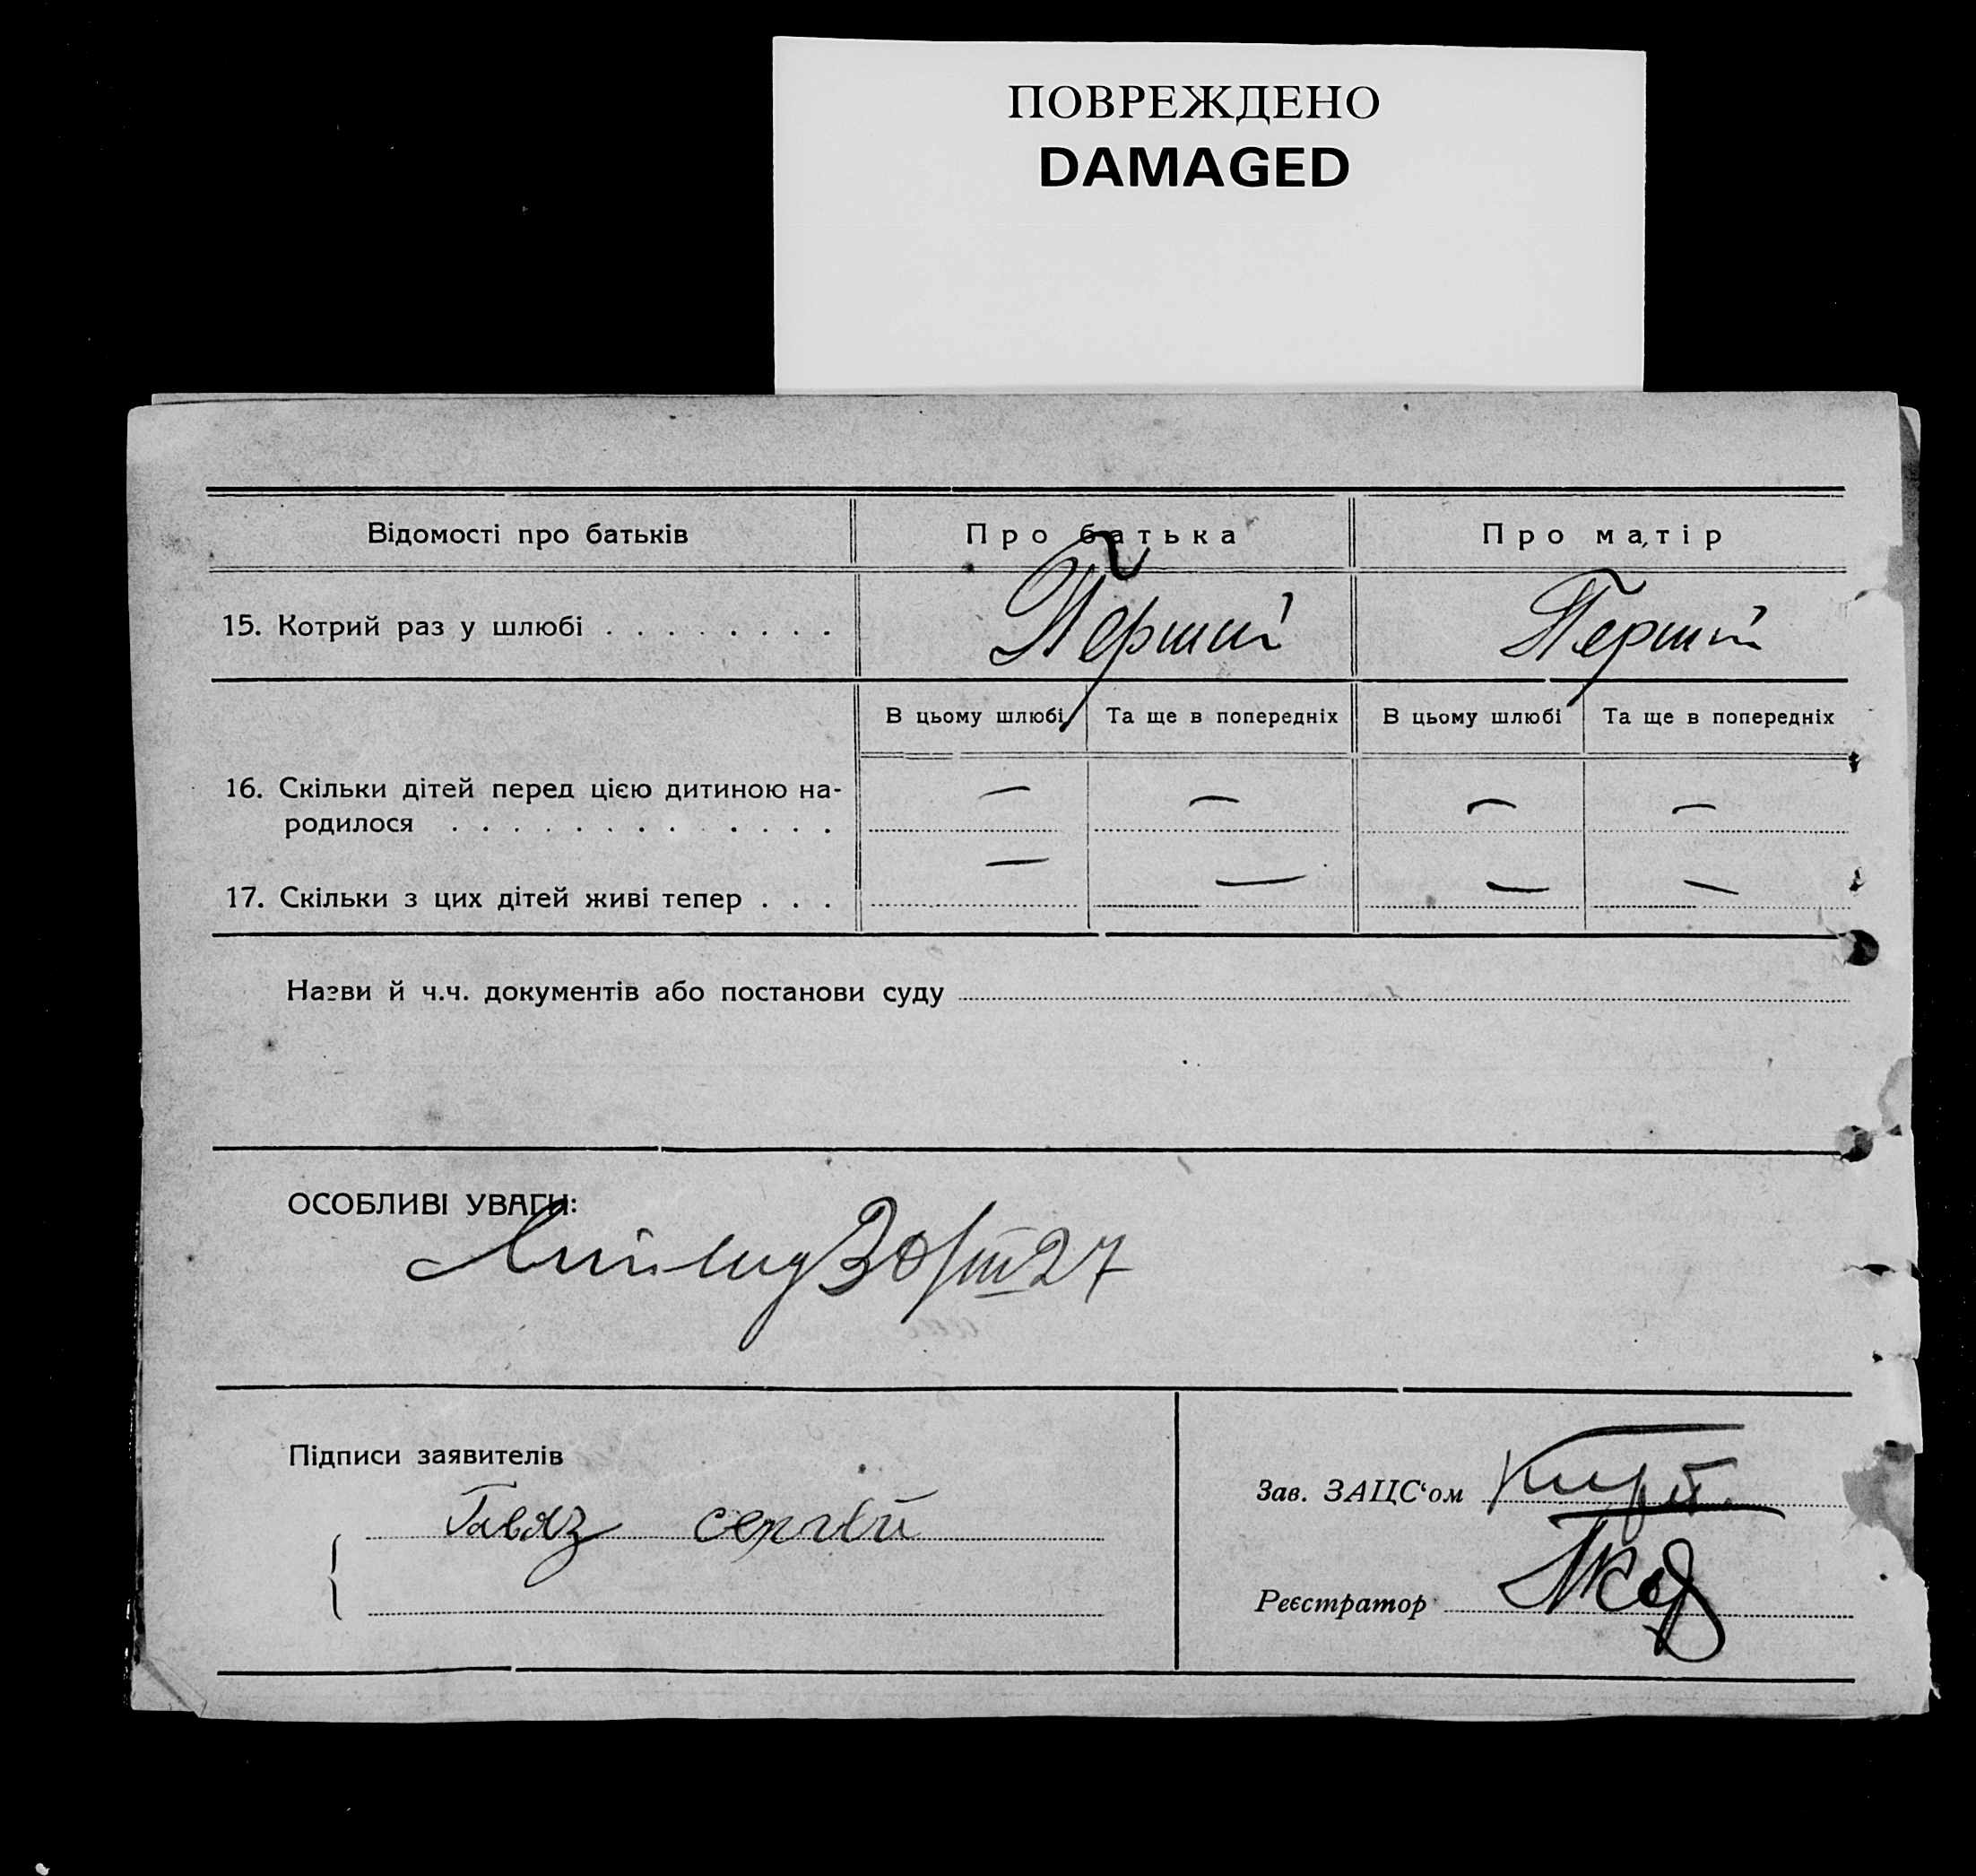 ПОВРЕЖДЕНО
DAMAGED
Відомості про батьків
Про батька
Про матір
15. Котрий раз у шлюбі . . . . . . . .
Перший
Перший
В цьому шлюбі
Та ще в попередніх
В цьому шлюбі
Та ще в попередніх
16. Скільки дітей перед цією дитиною на-
родилося . . . . . . . . . . . . .
— — — —
17. Скільки з цих дітей живі тепер . . .
— — — —
Назви й ч.ч. документів або постанови суду
ОСОБЛИВІ УВАГИ:
30/III 27
Підписи заявителів
Гавяз сергей
Зав. ЗАЦС‘ом
Реєстратор